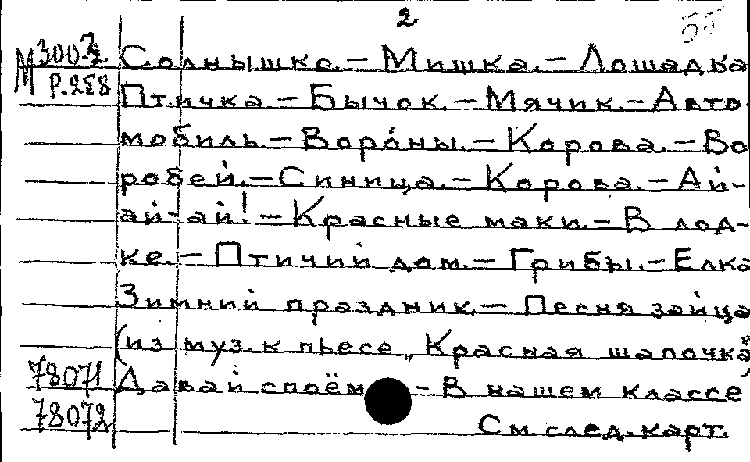 2
55
М 3007г. Солнышко.- Мишка.- Лошадка
Р.288 Птичка.- Бычок.- Мячик.- Авто
мобиль.- Воро́ны.- Корова.- Во
робей.- Синица.- Корова.- Ай-
ай-ай!- Красные маки.- В лод-
ке.- Птичий дом.- Грибы.- Елка
Зимний праздник.- Песня зайца
(из муз. к пьесе „Красная шапочка")
78071 Давай споём - В нашем классе
78072 См след. карт.